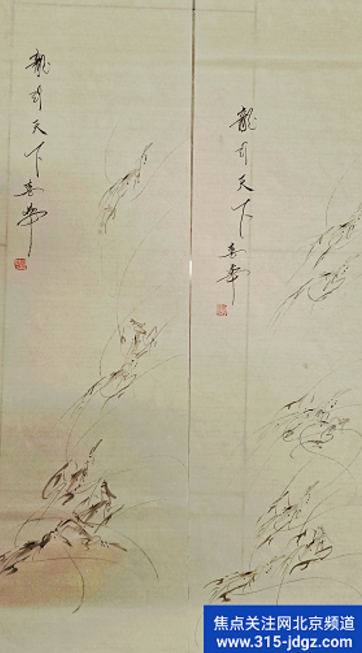 龍行天下
龍行天下
焦点关注网北京频道
www.315-jdgz.com